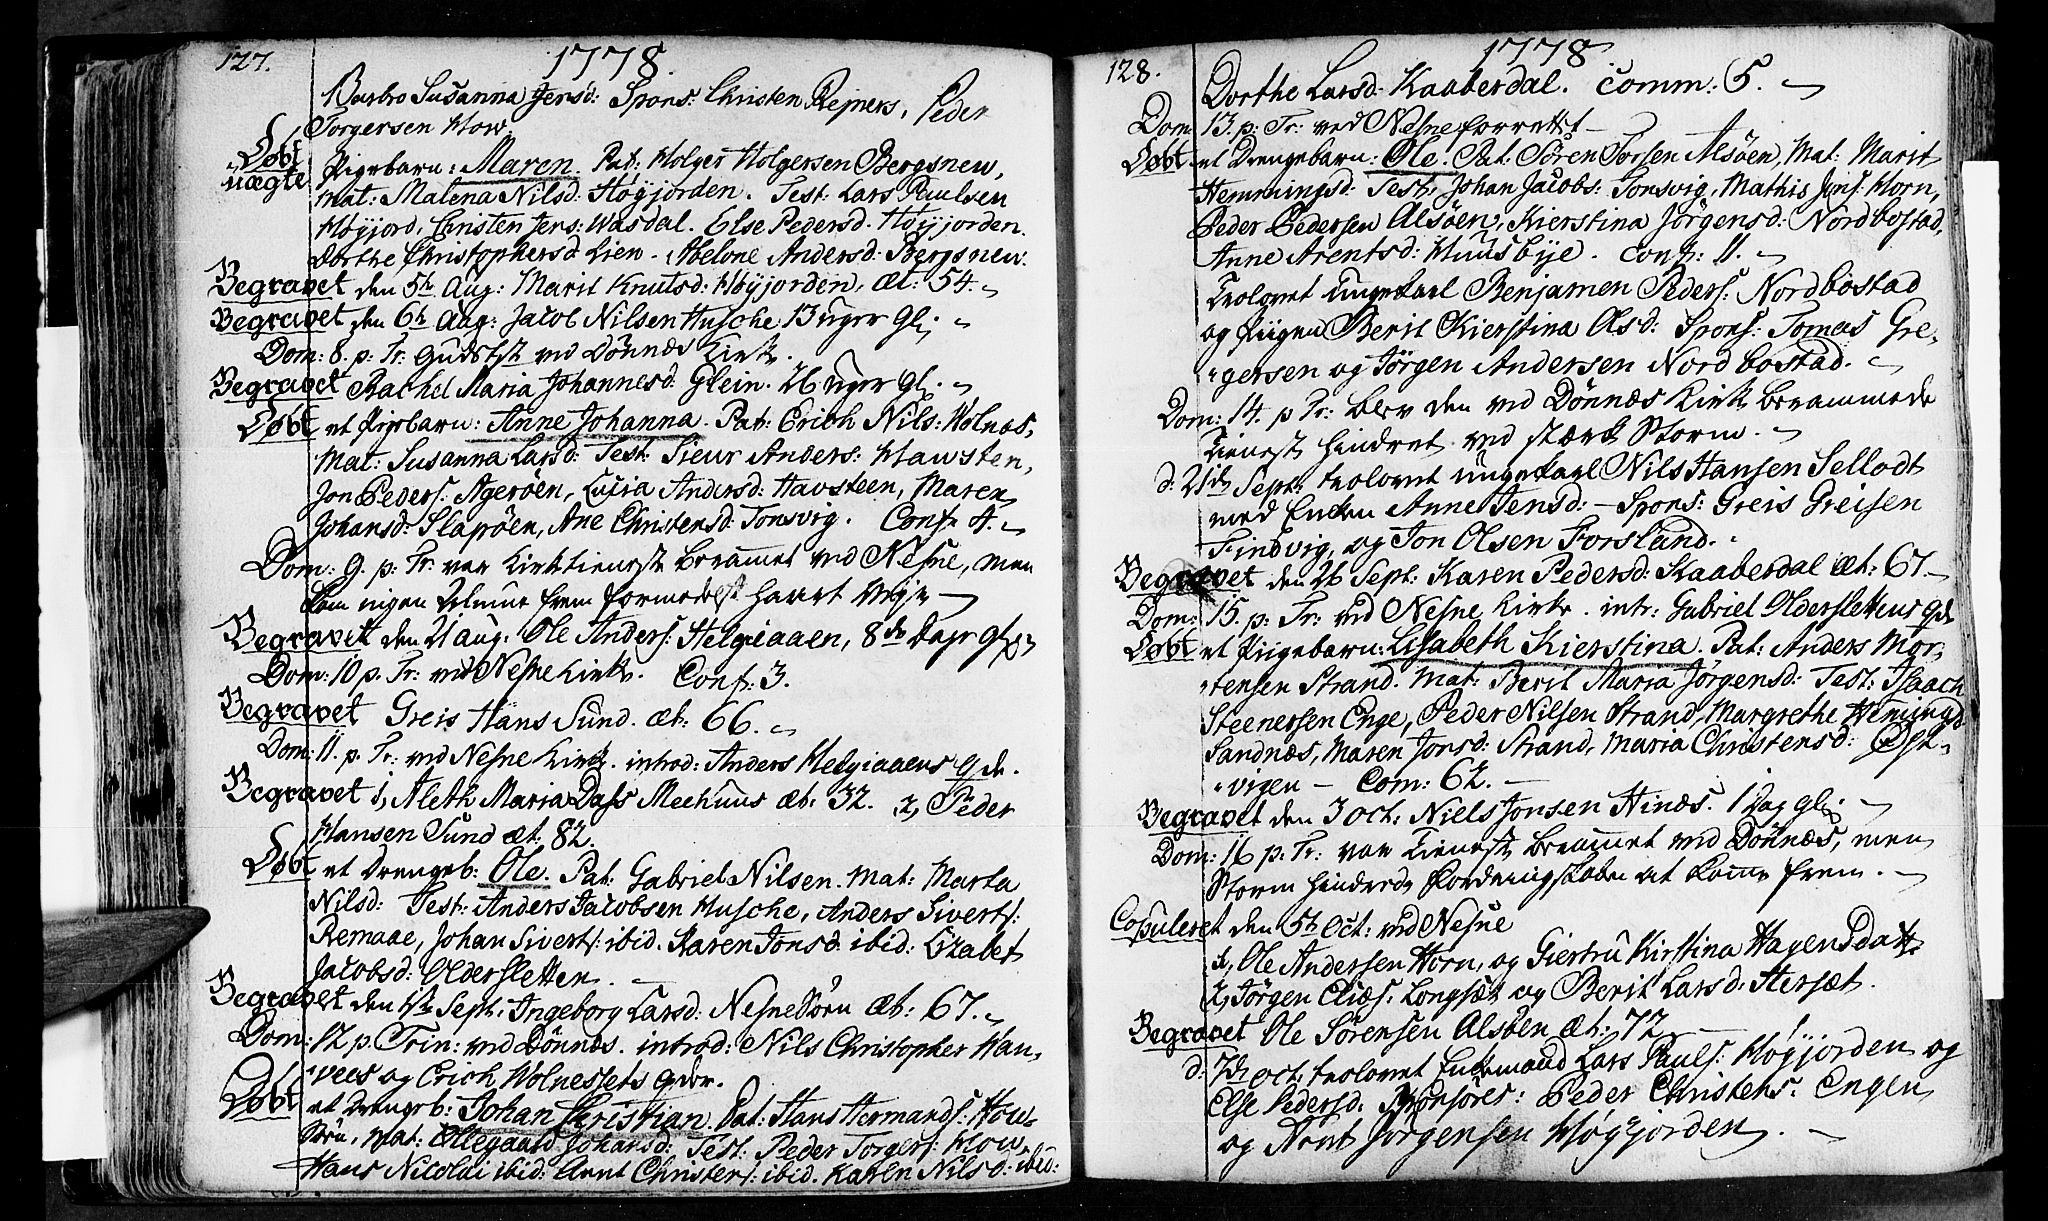 127. 1778.
Barbro Susanna Jensd: Spons: Christen Rejners, Peder
Torgersen How.
Døbt uægte Pigebarn: Maren. Pat: Holger Holgersen Bergsnew,
Mat: Malena Nilsd: Høyjorden. Test: Lars Paulsen
Høyjord, Christen Jens: Wasdal. Else Pedersd. Høyjorden.
Dorthe Christophersd Lien. Abelone Andersd: Bergsnew.
Begravet den 5th Aug: Marit Knutsd: Høyjorden, æt: 54.
Begravet den 6th Aug: Jacob Nilsen Husche 13 uger gl:
Dom: 8. p: Tr. Gudstst ved Dønnæs Kirk.
Begravet Rachel Maria Johannesd: Glein. 26 uger gl:
Døbt et Pigebarn: Anne Johanna. Pat: Erich Nils: Wolnæs,
Mat: Susanna Larsd: Test: Sieur Anders: Hawsten,
Jon Peders: Agerøen, Lucia Andersd: Hausteen, Maren
Johansd: Slapøen, Ane Christensd: Tonsvig. Conf: 4.
Dom: 9. p: Tr. var Kirketieneste beramet ved Nesne, men
kom ingen Almue frem formedelst haart Vejr
Begravet den 21 aug: Ole Anders: Helgiaaen, 8de Dage gl:
Dom: 10 p. Tr: ved Nesne Kirk. Conf: 3.
Begravet Greis Hans Sund. æt: 66.
Dom: 11. p. Tr: ved Nesne Kirk. introd: Anders Helgiaaens qde.
Begravet 1, Aleth Maria Dass Meehuus æt: 32. 2, Peder
Hansen Sund æt. 82.
Døbt et Drengeb: Ole. Pat: Gabriel Nilsen. Mat: Marta
Nilsd: Test: Anders Jacobsen Husche, Anders Siverts:
Remaae, Johan Siverts: ibid. Karen Jonsd: ibid: Lizabet
Jacobsd: Oldersletten.
Begravet den 1ste Sept: Ingeborg Larsd: Nesne Sørn æt: 67.
Dom: 12 p. Trin: ved Dønnæs. introd: Nils Christopher Han,
vees og Erich Wolnessets qder.
Døbt et Drengeb: Johan Christian. Pat: Hans Hermands: How-
Mat: Ellegaard Johansd: Test: Peder Torgers: How,
Hans Nicolai ibid: Arnt Christens: ibid. Karen Nilsd: ibid:
128. 1778
Dorthe Larsd: Kaaberdal. Comm: 5.
Dom: 13. p: Tr: ved Nesne forrettet
Døbt et Drengebarn: Ole. Pat: Sören Torsen Alsöen, Mat: Marit
Hemmingsd: Test, Johan Jacobs: Tonsvig, Mathis Jens: Horn,
Peder Pedersen Alsöen, Kierstina Jörgensd: Nordbostad,
Anne Arentsd: Huusbye. Conf: 11.
Trolovet Ungekarl Benjamen Peders: Nordbostad
og Pigen Berit Kierstina Olsd: Spons: Tomas Gre-
gersen og Jörgen Andersen Nordbostad.
Dom: 14. p Tr: blev den ved Dønnæs Kirk berammede
Tieneste hindret ved stærk Storm.
d: 21de Sept: trolovet Ungekarl Nils Hansen Sellodt
med Enken Anne Jensd: - Spons: Greis Greisen
Findvig, og Jon Olsen Forsland.
Begravet den 26 Sept: Karen Pedersd: Kaaberdal æt: 67.
Dom: 15. p: Tr: ved Nesne Kirk. intr: Gabriel Olderslettens qde
Døbt et Pigebarn: Lisabeth Kierstina. Pat: Anders Mor,
tensen Strand. Mat: Berit Maria Jörgensd: Test: Isaach
Steenersen Enge, Peder Nilsen Strand, Margrethe Hemingsd
Sandnæs, Maren Jonsd: Strand, Maria Christensd:
vigen - Com: 62.
Begravet den 3 Oct: Niels Jonsen Hinæs. 1 Dag gl:
Dom: 16 p: Tr: var Tieneste beramet ved Dønnæs, men
Storm hindrede at komme frem.
Copuleret den 5te Oct: ved Nesne
1, Ole Andersen Horn, og Giertru Kirstina Hagensdatt
2, Jörgen Eliæs: Longset og Berit Larsd: Hersæt.
Begravet Ole Sörensen Alsöen æt: 72
d: 7de Oct: trolovet Enkemand Lars Pauls: Høyjorden og
Else Pedersd. Sponsores: Peder Christens: Engen
og Arnt Jörgensen Høyjorden.